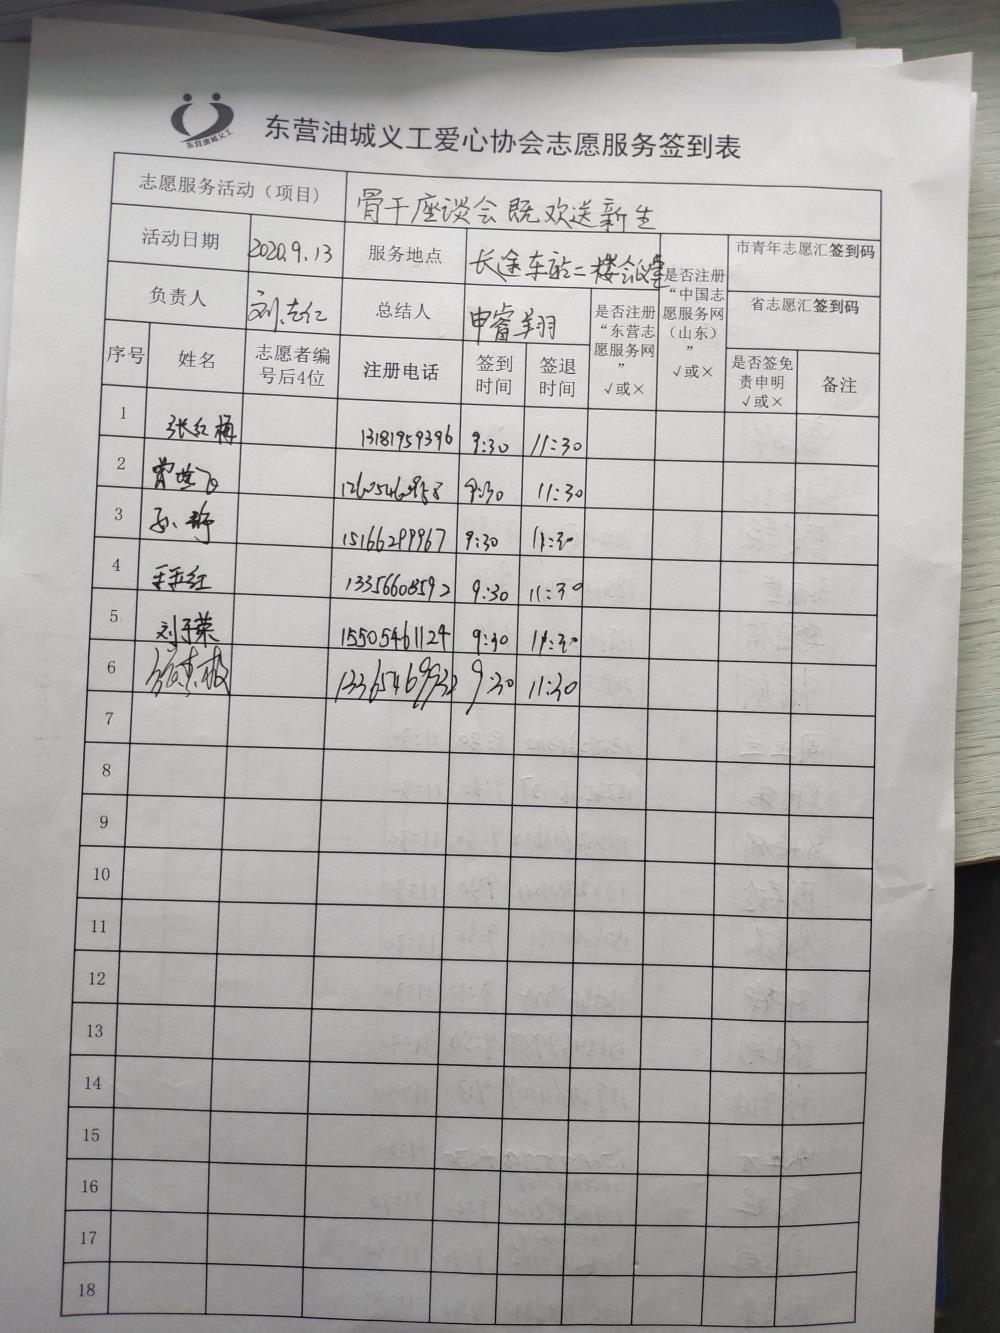 东营油城义工
东营油城义工爱心协会志愿服务签到表
志愿服务活动（项目） 骨干座谈会既欢送新生
活动日期 2020.9.13 服务地点 长途车站二楼会议室 是否注册“中国志愿服务网（山东）” √或× 市青年志愿汇签到码
负责人 刘志仁 总结人 申睿翔羽 是否注册“东营志愿服务网” √或× 省志愿汇签到码
序号 姓名 志愿者编号后4位 注册电话 签到时间 签退时间 是否签免责申明 √或× 备注
1 张红梅 13181959396 9:30 11:30
2 9:30 11:30
3 15166299967 9:30 11:30
4 13356608592 9:30 11:30
5 刘子荣 15505461124 9:30 11:30
6 9:30 11:30
7
8
9
10
11
12
13
14
15
16
17
18